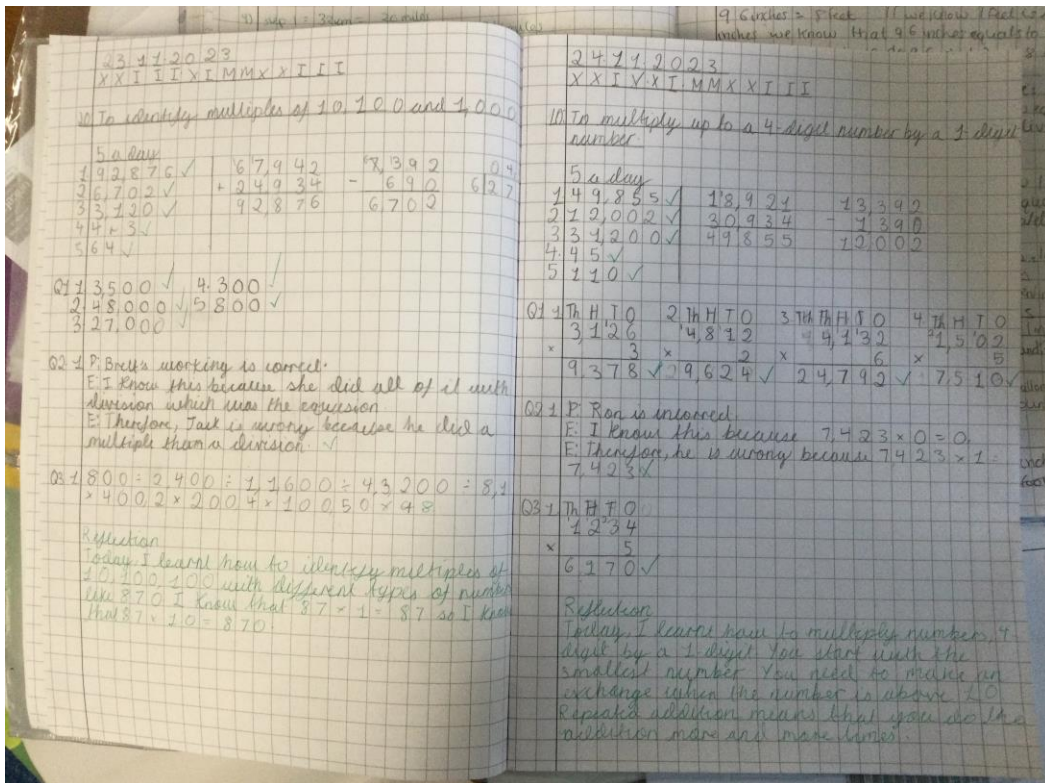 9 6 inches = 8 feet If we know 1 feet is
inches we know that 96 inches equals to
23.11.2023
XXIII XI MMXXIII
LO To identify multiples of 10,100 and 1,000
5 a day
1 92,876 ✓
2 6,702 ✓
3 3,120 ✓
4 4 r 3 ✓
5 64 ✓
67,942
+ 24934
92876
7,392
- 690
6,702
Q1 1 3,500 ✓ 4. 300 ✓
2 48,000 ✓ 5 800 ✓
3 27,000 ✓
Q2 1 P: Brett's working is correct.
E: I know this because she did all of it with
division which was the equesion
E: Therefore, Jack is wrong because he did a
multiple than a division. ✓
Q3 1 800 ÷ 2,400 ÷ 1,1600 ÷ 4,3200 ÷ 8,1
× 400 2 × 200 4 × 100 50 × 98
Reflection
Today, I learnt how to identify multiples of
10,100,100 with different types of number
like 870 I know that 87 × 1 = 87 so I know
that 87 × 10 = 870.
24.11.2023
XXIV XI MMXXIII
LO To multiply up to a 4-digit number by a 1-digit
number.
5 a day
1 49,855 ✓
2 12,002 ✓
3 31,200 ✓
4. 45 ✓
5 110 ✓
18,921
30,934
49855
13,392
- 1,390
12002
Q1 1 Th H T O 2 Th H T O 3 TTh Th H T O 4 Th H T O
3,126 4,812 4,132 1,502
× 3 × 2 × 6 × 5
9,378 ✓ 9,624 ✓ 24,792 ✓ 7,510 ✓
Q2 1 P: Ron is incorrect
E: I know this because 7,423 × 0 = 0,
E: Therefore, he is wrong because 7423 × 1 =
7,423 ✓
Q3 1 Th H T O
1234
× 5
6,170 ✓
Reflection
Today, I learnt how to multiply numbers, 4
digit by a 1-digit You start with the
smallest number You need to make an
exchange when the number is above 10
Repeated addition means that you do the
addition more and more times.